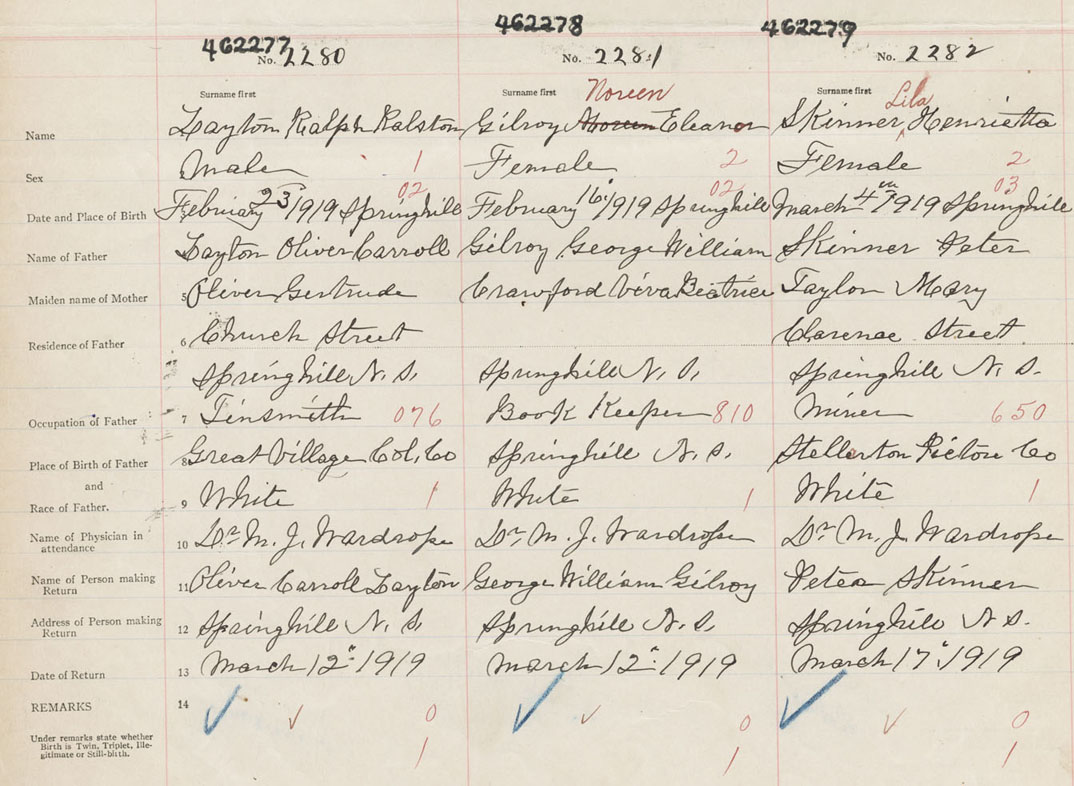 462277 462278 462279
No. 2280 No. 2281 No. 2282
Surname first Surname first Noreen Surname first Lila
Name Layton Ralph Ralston Gilroy Noreen Eleanor Skinner, Henrietta
Sex Male 1 Female 2 Female 2
02 02 03
Date and Place of Birth February 23 1919 Springhill February 16 1919 Springhill March 4th 1919 Springhill
Name of Father Layton Oliver Carroll Gilroy George William Skinner Peter
Maiden name of Mother 5 Oliver Gertrude Crawford Viva Beatrice Taylor Mary
Residence of Father 6 Church Street Clarence Street
Springhill N. S. Springhill N. S. Springhill N. S.
Occupation of Father 7 Tinsmith 076 Book Keeper 810 Miner 650
Place of Birth of Father 8 Great Village Col, Co Springhill N. S. Stellerton Pictou Co
and
Race of Father. 9 White 1 White 1 White 1
Name of Physician in attendance 10 Dr M. J. Wardrope Dr M. J. Wardrope Dr M. J. Wardrope
Name of Person making Return 11 Oliver Carroll Layton George William Gilroy Peter Skinner
Address of Person making Return 12 Springhill N. S. Springhill N. S. Springhill N. S.
Date of Return 13 March 12" 1919 March 12" 1919 March 17" 1919
REMARKS 14 ✓ ✓ 0 ✓ ✓ 0 ✓ ✓ 0
Under remarks state whether Birth is Twin, Triplet, Ille-
gitimate or Still-birth. 1 1 1